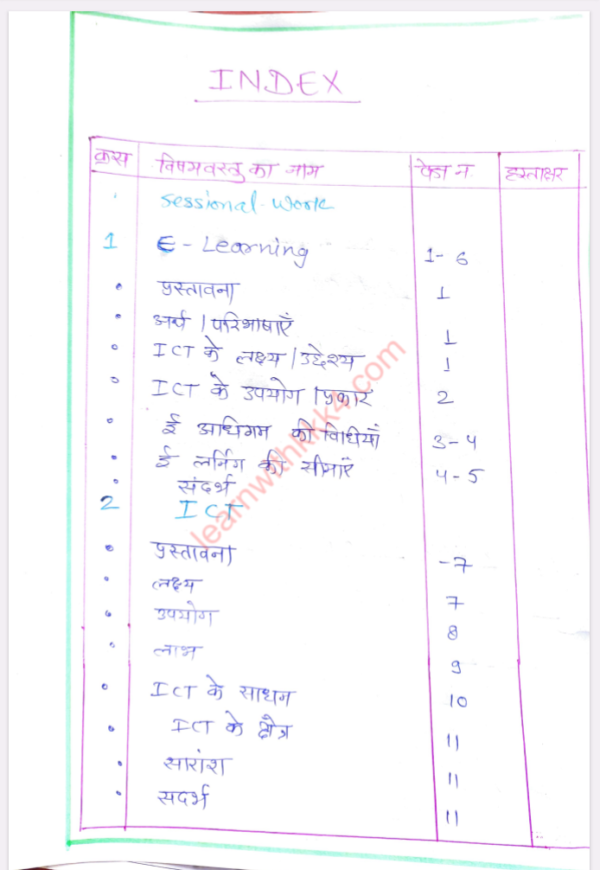 INDEX
क्रस विषयवस्तु का नाम पेज न हस्ताक्षर
Sessional Work
1 E-Learning 1-6
प्रस्तावना 1
अर्थ / परिभाषाएँ 1
ICT के लक्ष्य / उद्देश्य 1
ICT के उपयोग / प्रकार 2
ई अधिगम की विधियाँ 3-4
ई लर्निंग की सीमाएँ 4-5
संदर्भ
2 ICT
प्रस्तावना -7
लक्ष्य 7
उपयोग 8
लाभ 9
ICT के साधन 10
ICT के क्षैत्र 11
सारांश 11
सदर्भ 11
learnwithkkk4.com